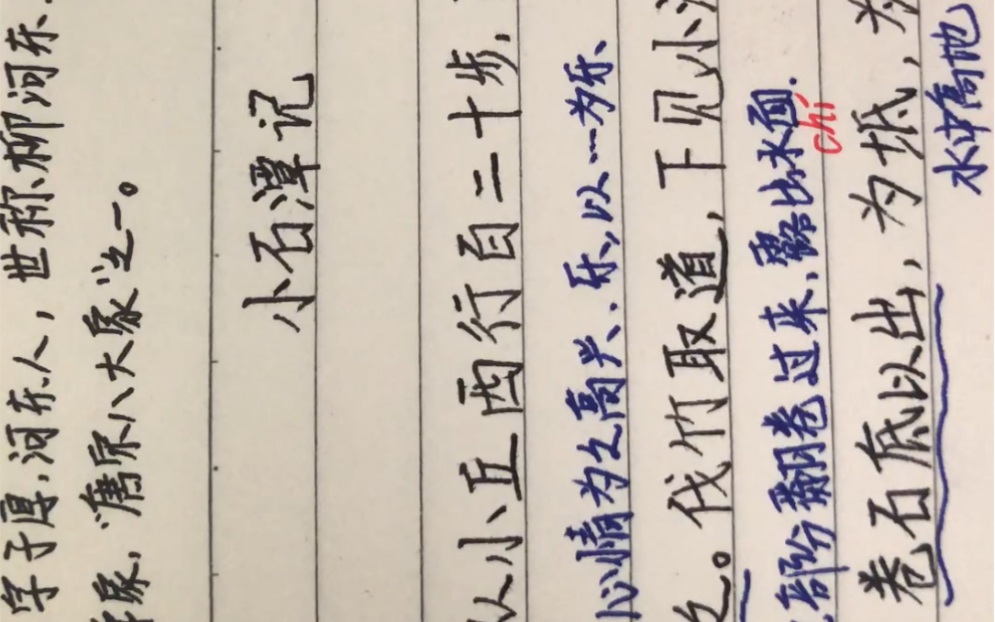 字子厚,河东人,世称柳河东.
家,“唐宋八大家”之一。
小石潭记
从小丘西行百二十步,
心情为之高兴、乐,以…为乐、
。伐竹取道,下见小
部份翻卷过来,露出水面.
chí
卷石底以出,为坻,为
水中高地